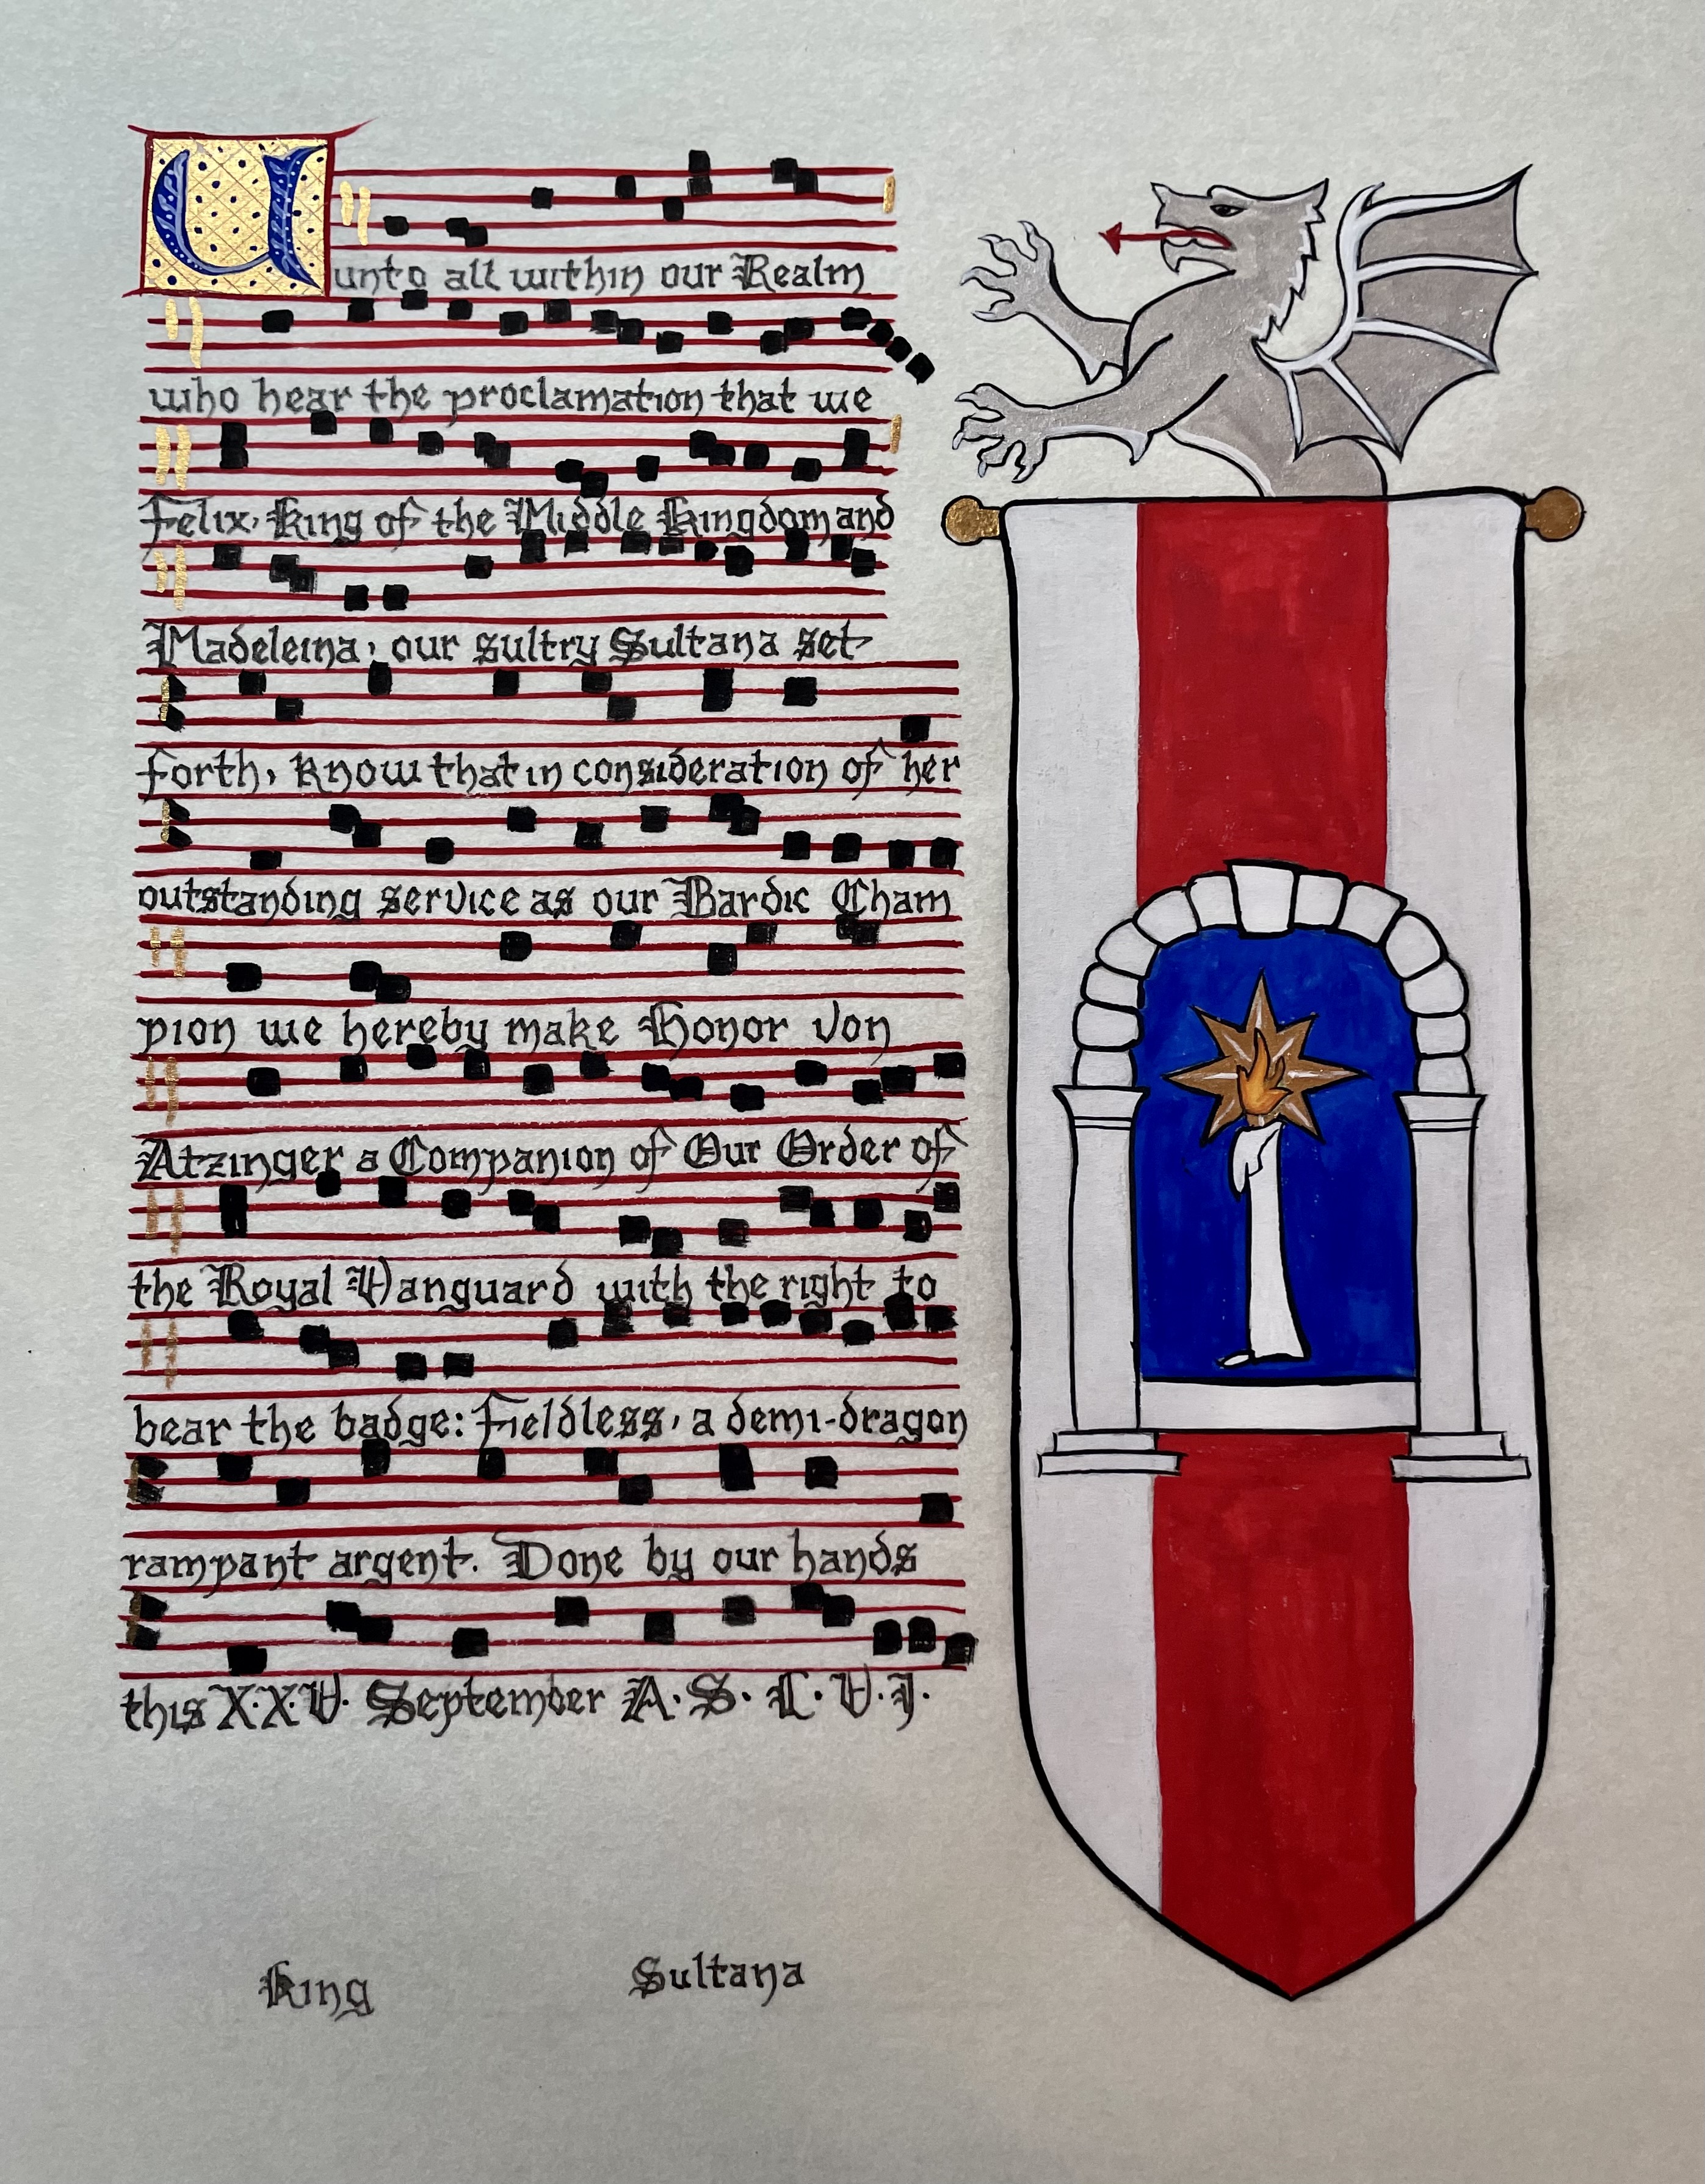 U unto all within our Realm
who hear the proclamation that we
Felix, King of the Middle Kingdom and
Madeleina, our sultry Sultana set
forth, know that in consideration of her
outstanding service as our Bardic Cham
pion we hereby make Honor Von
Atzinger a Companion of Our Order of
the Royal Vanguard with the right to
bear the badge: Fieldless, a demi-dragon
rampant argent. Done by our hands
this X.X.V. September A.S. L.V.I.
King Sultana